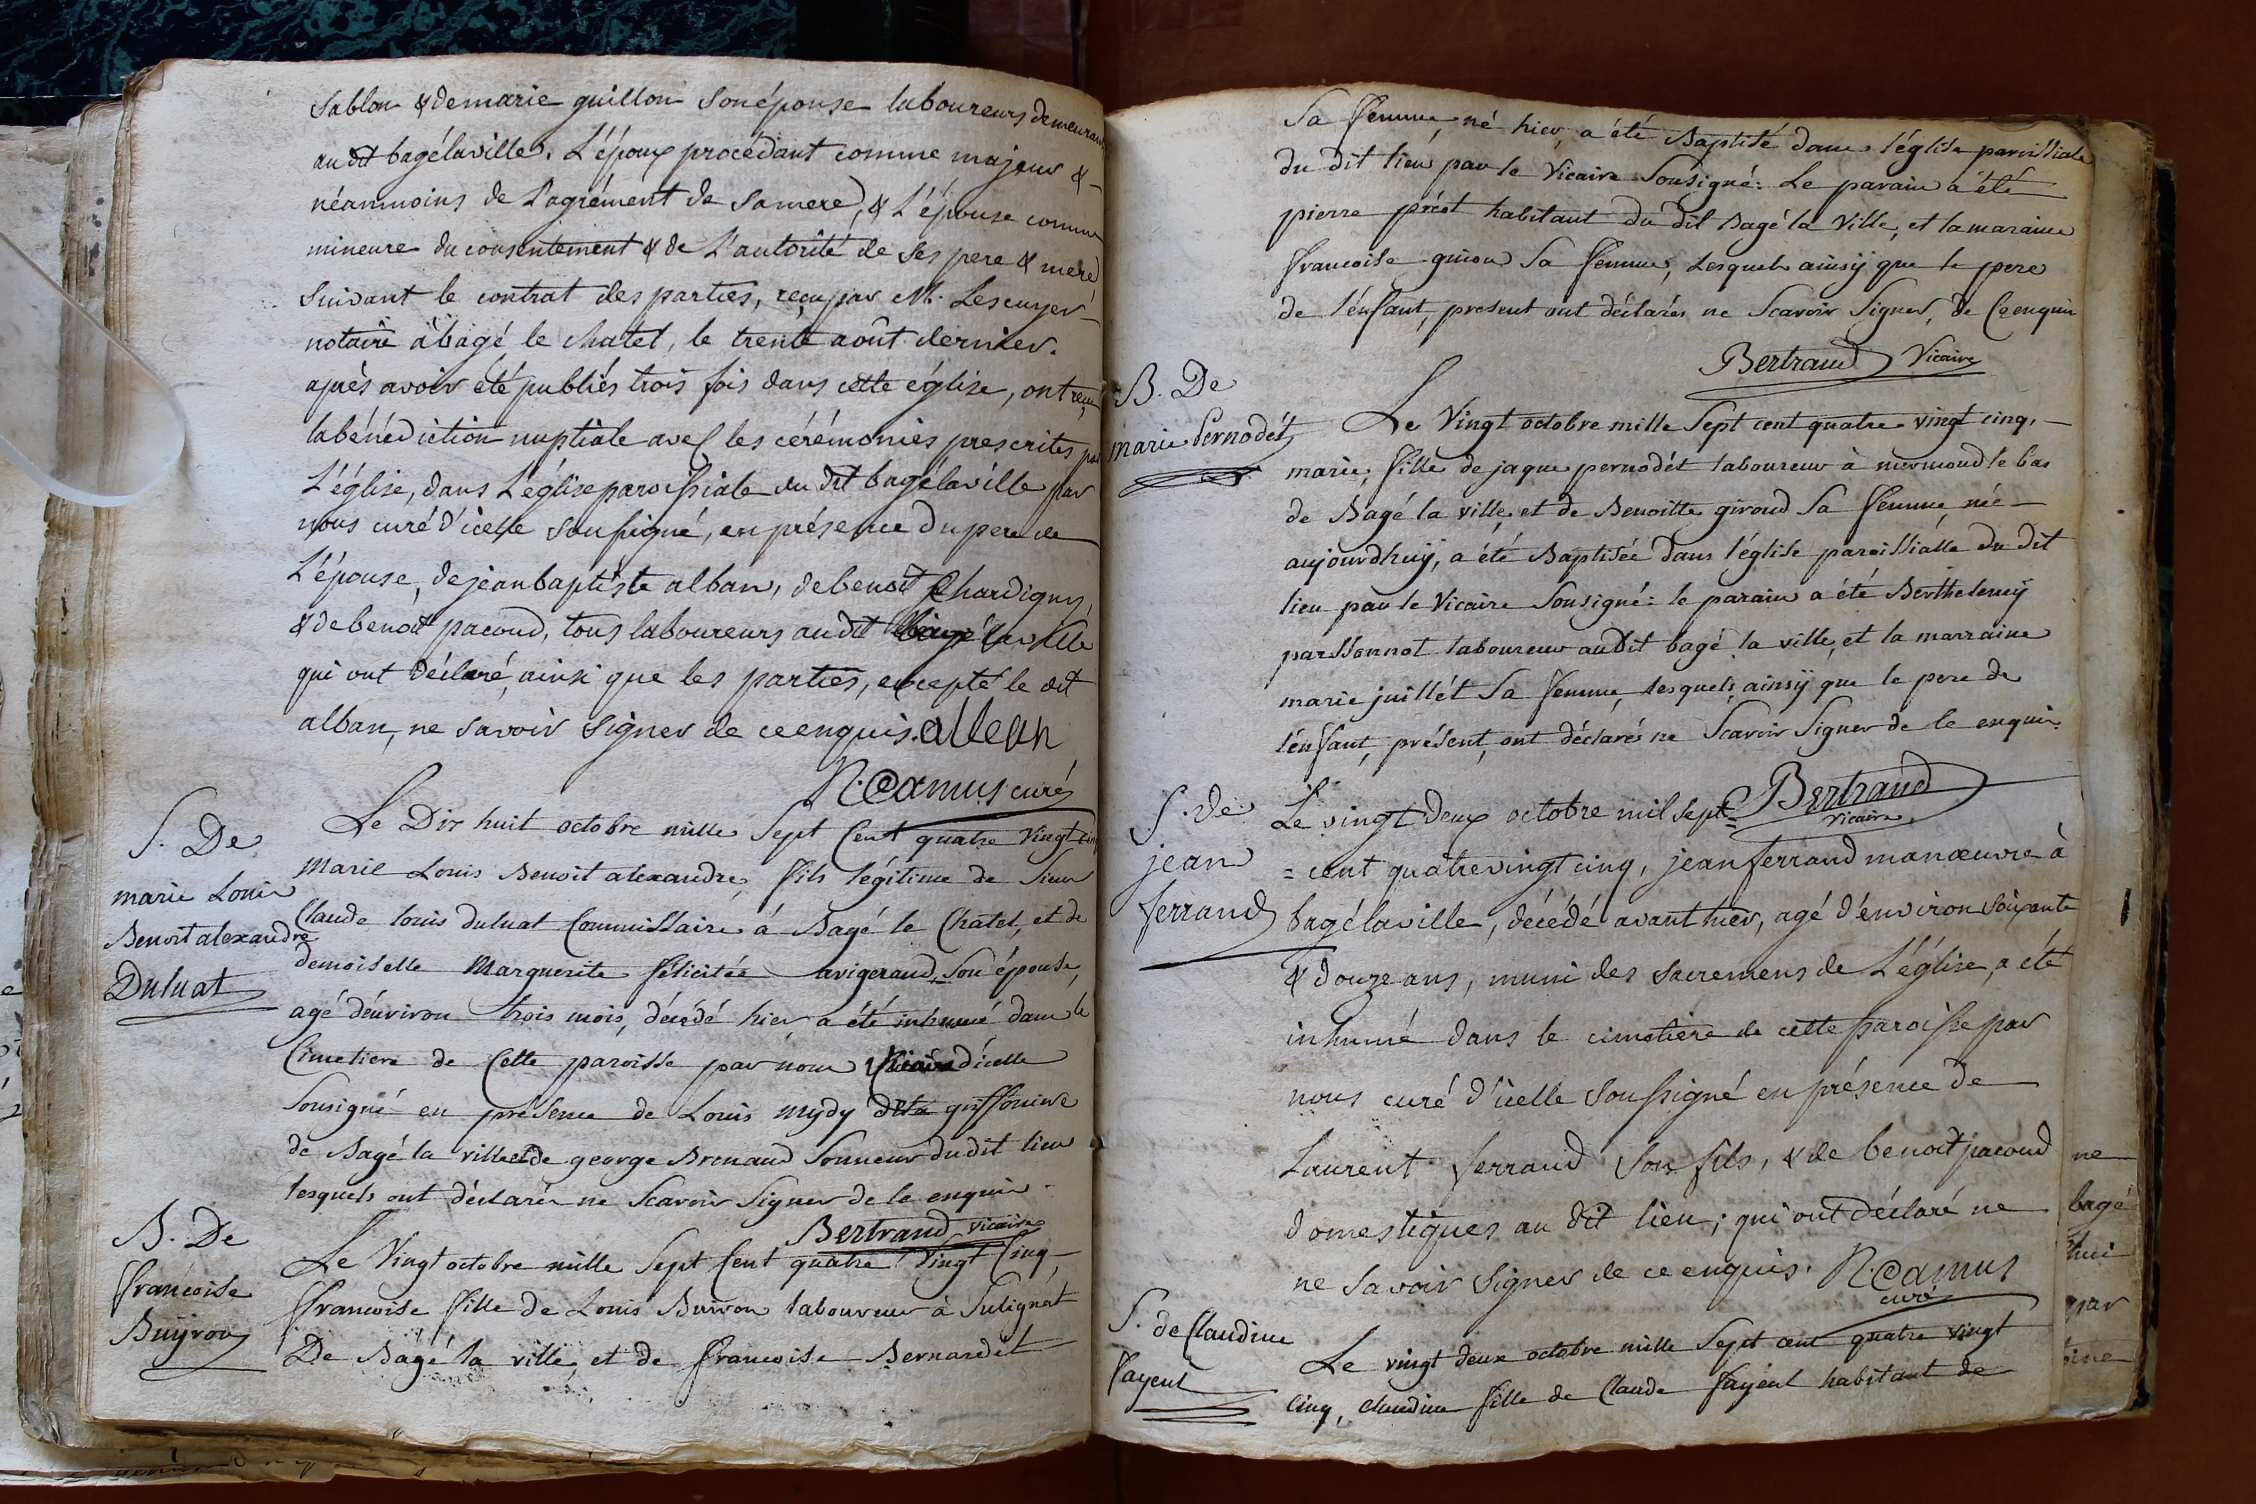 Sablon & demarie guillon son épouse laboureurs demeurant
au dit bagélaville. L'époux procédant comme majeur &
néanmoins de l'agrément de samere, & L'épouse comme
mineure du consentement & de L'autorité de ses pere & mere,
suivant le contrat des parties, reçu par M. Lescuyer
notaire à bagé le chatel, le trente août dernier.
après avoir été publiés trois fois dans cette église, ont reçu
la bénédiction nuptiale avec les cérémonies prescrites par
L'église, dans L'église paroissiale du dit bagélaville par
nous curé d'icelle soussigné, en présence du pere de
L'épouse, de jean baptiste alban, de benoit Chardigny,
& de benoit pacoud, tous laboureurs au dit bagé la ville
qui ont déclaré, ainsi que les parties, excepté le dit
alban, ne savoir signer de ce enquis. alban
N. Camus curé
S. De
marie Louis
Benoit alexandre
Duluat
Le Dix huit octobre mille Sept Cent quatre Vingt cinq
Marie Louis Benoit alexandre, fils légitime de Sieur
Claude louis duluat Commissaire á Bagé le Chatel, et de
demoiselle Marguerite félicitée avigeraud, Son épouse,
agé d'énviron trois mois, décédé hier a été inhumé dans le
Cimetiere de Cette paroisse par nous Vicaire d'icelle
Sousigné en présence de Louis mydy
de Bagé la ville et de george Brenaud Sonneur du dit lieu
lesquels ont déclarés ne Scavoir Signer de le enquis.
Bertrand vicaire
B. De
francoise
Buyron
Le Vingt octobre mille Sept Cent quatre Vingt Cinq,
francoise fille de Louis Buiron laboureur à Sulignat
De Bagé la ville, et de francoise Bernardet
Sa femme, né hier, a été Baptisé dans l'église paroissiale
du dit lieu par le Vicaire Sousigné: Le parain a été
pierre préot habitant du dit Bagé la Ville, et la maraine
francoise guion Sa femme, Lesquels ainsÿ que le pere
de l'énfant, present ont déclarés ne Scavoir Signer, de Ce enquis
Bertrand Vicaire
B. De
marie Pernodét
Le Vingt octobre mille Sept cent quatre vingt cinq,
marie, fille de jaque pernodét laboureur à mermoud le bas
de Bagé la ville, et de Benoitte giroud Sa femme, née
aujourdhuÿ, a été Baptisée dans l'église paroissialle du dit
lieu par le Vicaire Sousigné: le parain a été Berthelemÿ
parssonnot laboureur au Dit bagé la ville, et la marraine
marie juillét Sa femme, lesquels, ainsÿ que le pere de
l'énfant, présent, ont déclarés ne Scavoir Signer de le enquis.
Bertrand
Vicaire
S. de
jean
ferrand
Le vingt deux octobre mil sept=
= cent quatrevingt cinq, jean ferrand manœuvre à
bagélaville, décédé avant hier, agé d'environ soixante
& douze ans, muni des sacremens de L'église, a été
inhumé dans le cimetière de cette paroisse par
nous curé d'icelle soussigné en présence de
Laurent ferrand son fils, & de benoit pacoud
domestiques au dit lieu; qui ont déclaré ne
ne savoir signer de ce enquis. N. Camus
curé
S. de Claudine
fayent
Le vingt deux octobre mille Sept cent quatre vingt
cinq, claudine fille de Claude fayent habitant de
ne
bagé
par